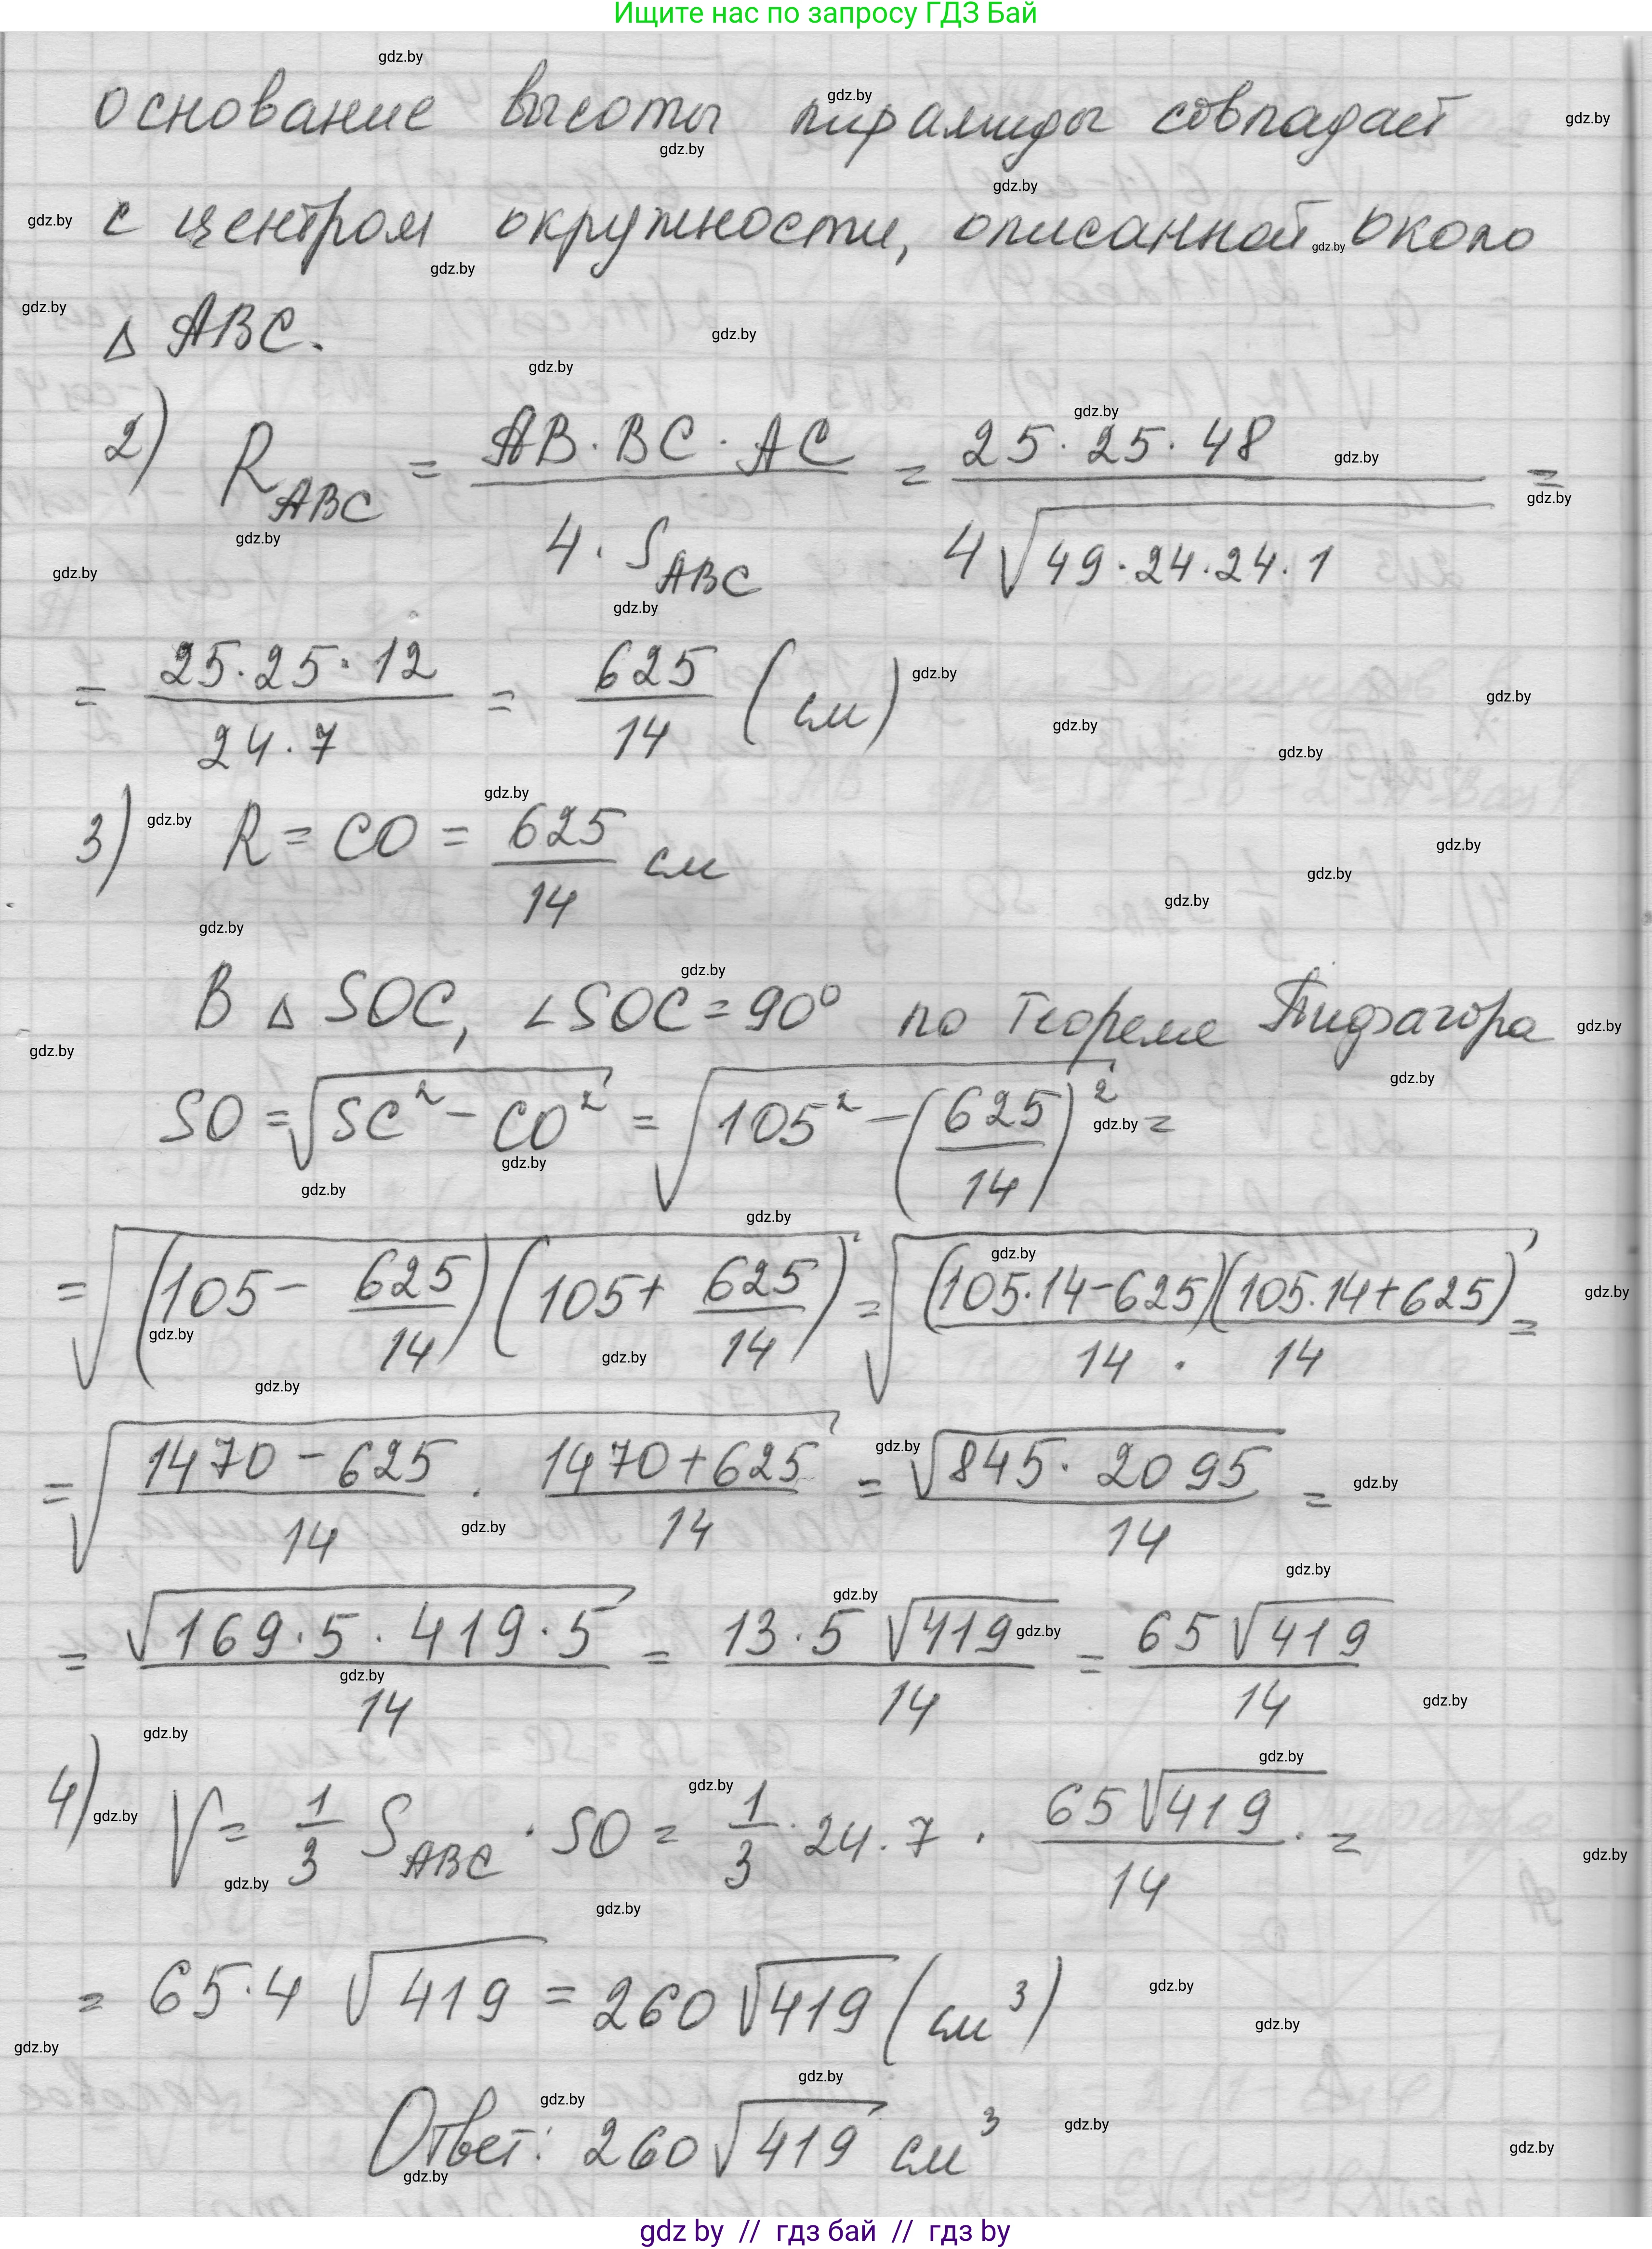 Ищите нас по запросу ГДЗ Бай
основание высоты пирамиды совпадает
с центром окружности, описанной около
Δ ABC.
2) R_ABC = (AB · BC · AC) / (4 · S_ABC) = (25 · 25 · 48) / (4√(49 · 24 · 24 · 1)) =
= (25 · 25 · 12) / (24 · 7) = 625/14 (см)
3) R = CO = 625/14 см
В Δ SOC, ∠SOC = 90° по теореме Пифагора
SO = √(SC² − CO²) = √(105² − (625/14)²) =
= √((105 − 625/14)(105 + 625/14)) = √((105·14 − 625)(105·14 + 625) / (14 · 14)) =
= √((1470 − 625)/14 · (1470 + 625)/14) = √(845 · 2095) / 14 =
= √(169 · 5 · 419 · 5) / 14 = 13 · 5 √419 / 14 = 65√419 / 14
4) V = 1/3 S_ABC · SO = 1/3 · 24 · 7 · 65√419 / 14 · =
= 65 · 4 √419 = 260√419 (см³)
Ответ: 260√419 см³
gdz by // гдз бай // гдз by